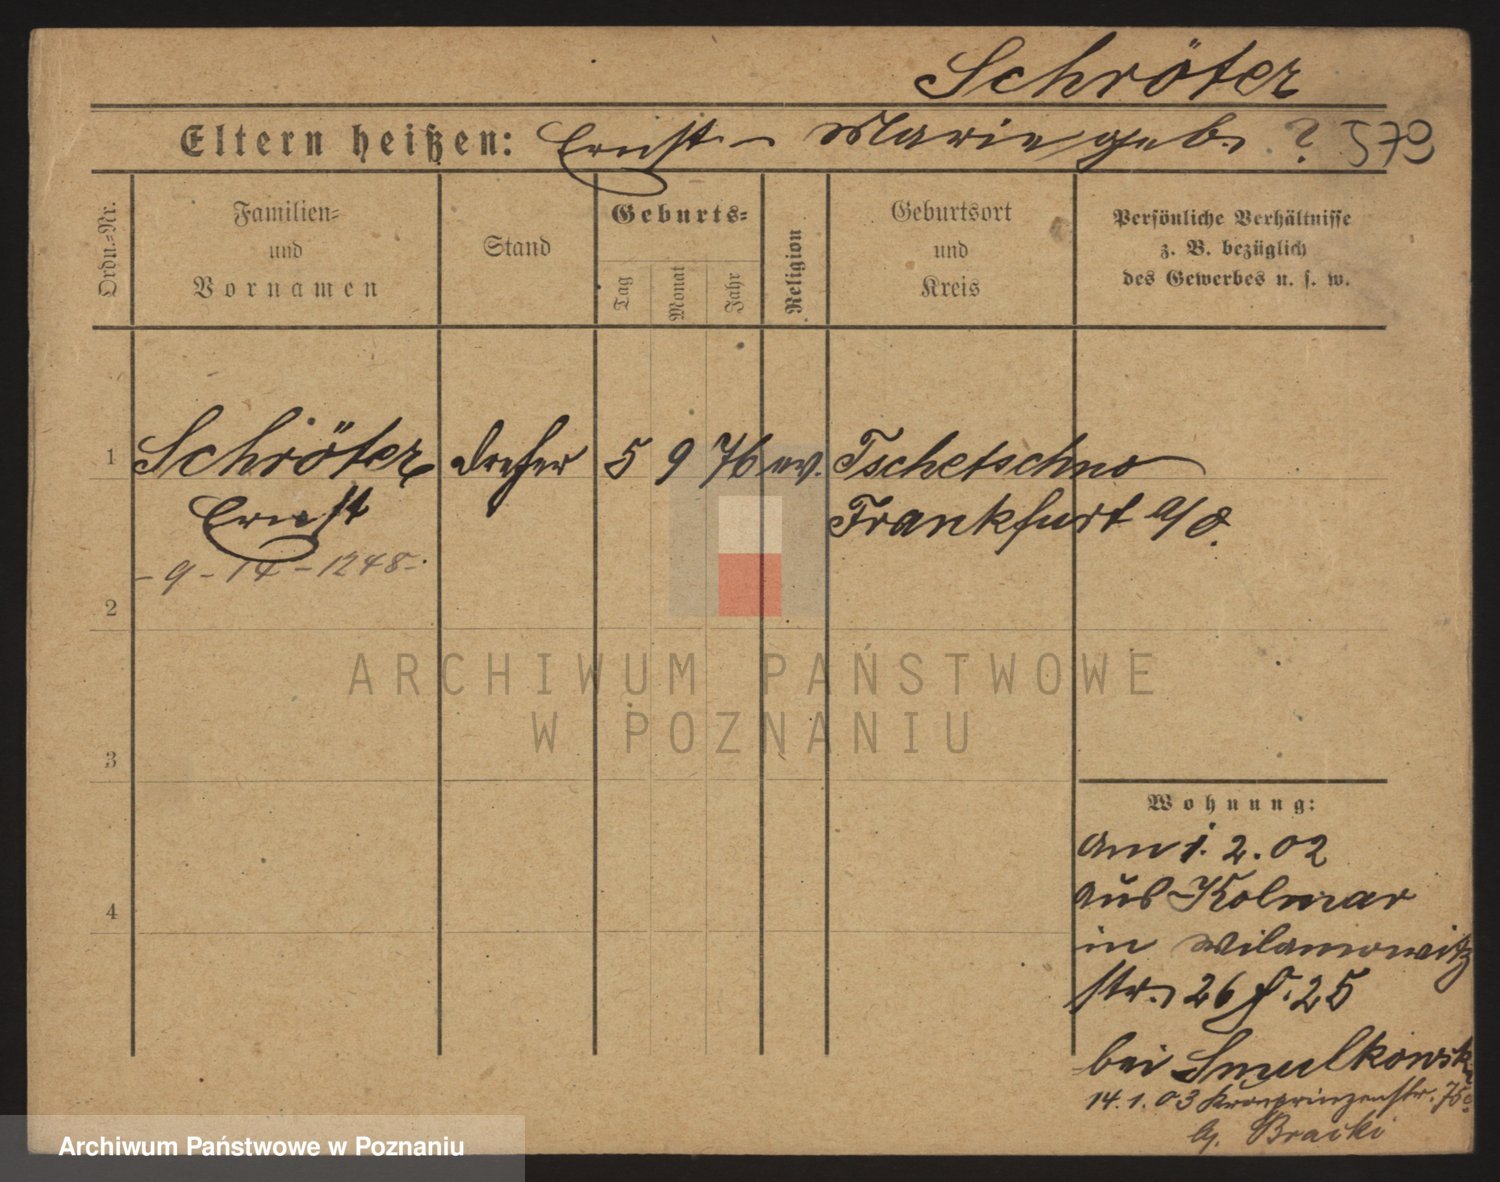 Schröter
Eltern heißen: Ernst - Marie geb. ? 573
Ordn.-Nr.
Familien-
und
Vornamen
Stand
Geburts-
Tag
Monat
Jahr
Religion
Geburtsort
und
Kreis
Persönliche Verhältnisse
z. B. bezüglich
des Gewerbes u. s. w.
1 Schröter Dreher 5 9 76 ev. Tschetschno
Ernst Frankfurt a/O.
- 9 - 14 - 1248 -
2
ARCHIWUM PAŃSTWOWE
W POZNANIU
3
Wohnung:
am 1. 2. 02
aus Kolmar
in Wilamowitz
str. 26 f. 25
4
bei Smulkowsk
14. 1. 03 Kronprinzenstr. 75a
bj. Bracki
Archiwum Państwowe w Poznaniu